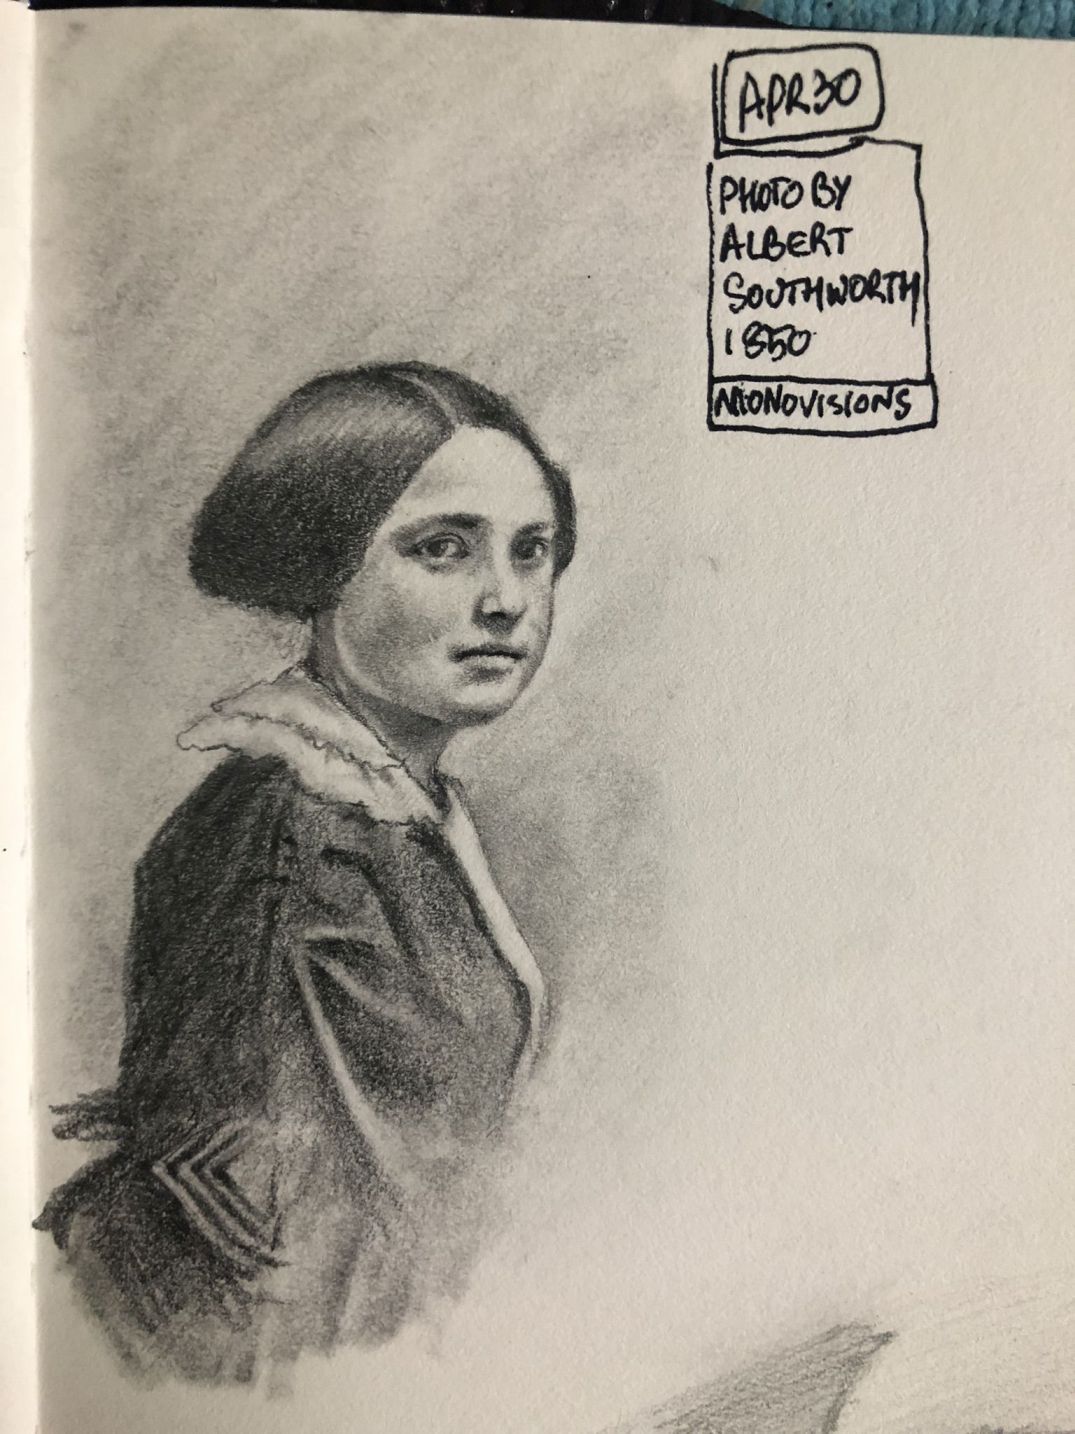 APR30
PHOTO BY
ALBERT
SOUTHWORTH
1850
MONOVISIONS